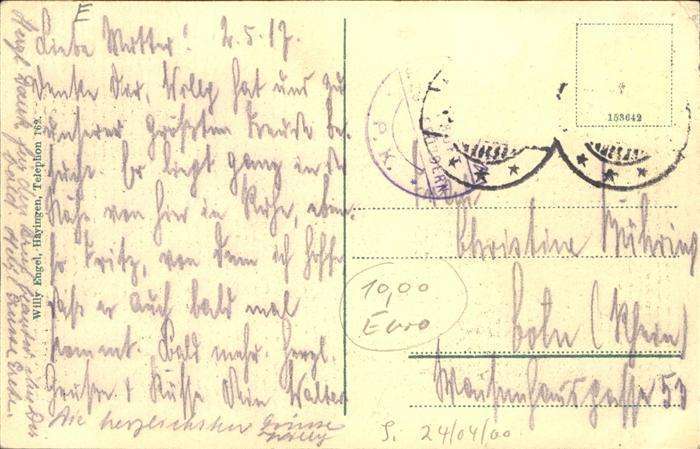 E
Liebe Mutter! 2.5.17.
Denke Dir, Willy hat uns zu
unserer größten Freude be-
sucht. Er liegt ganz in der
Nähe von hier in Ruhe, eben-
so Fritz, von dem ich hoffe
daß er auch bald mal
kommt. Bald mehr. Herzl.
Grüße & Küsse Dein Walter
Die herzlichsten Grüsse
Willy
Herzl. Dank für den
bald
Willy Engel, Hayingen, Telephon 162.
P. K.
153642
Christine
Cöln (Rhein)
Waisenhausgasse 53
10,00
Euro
S. 24/04/00